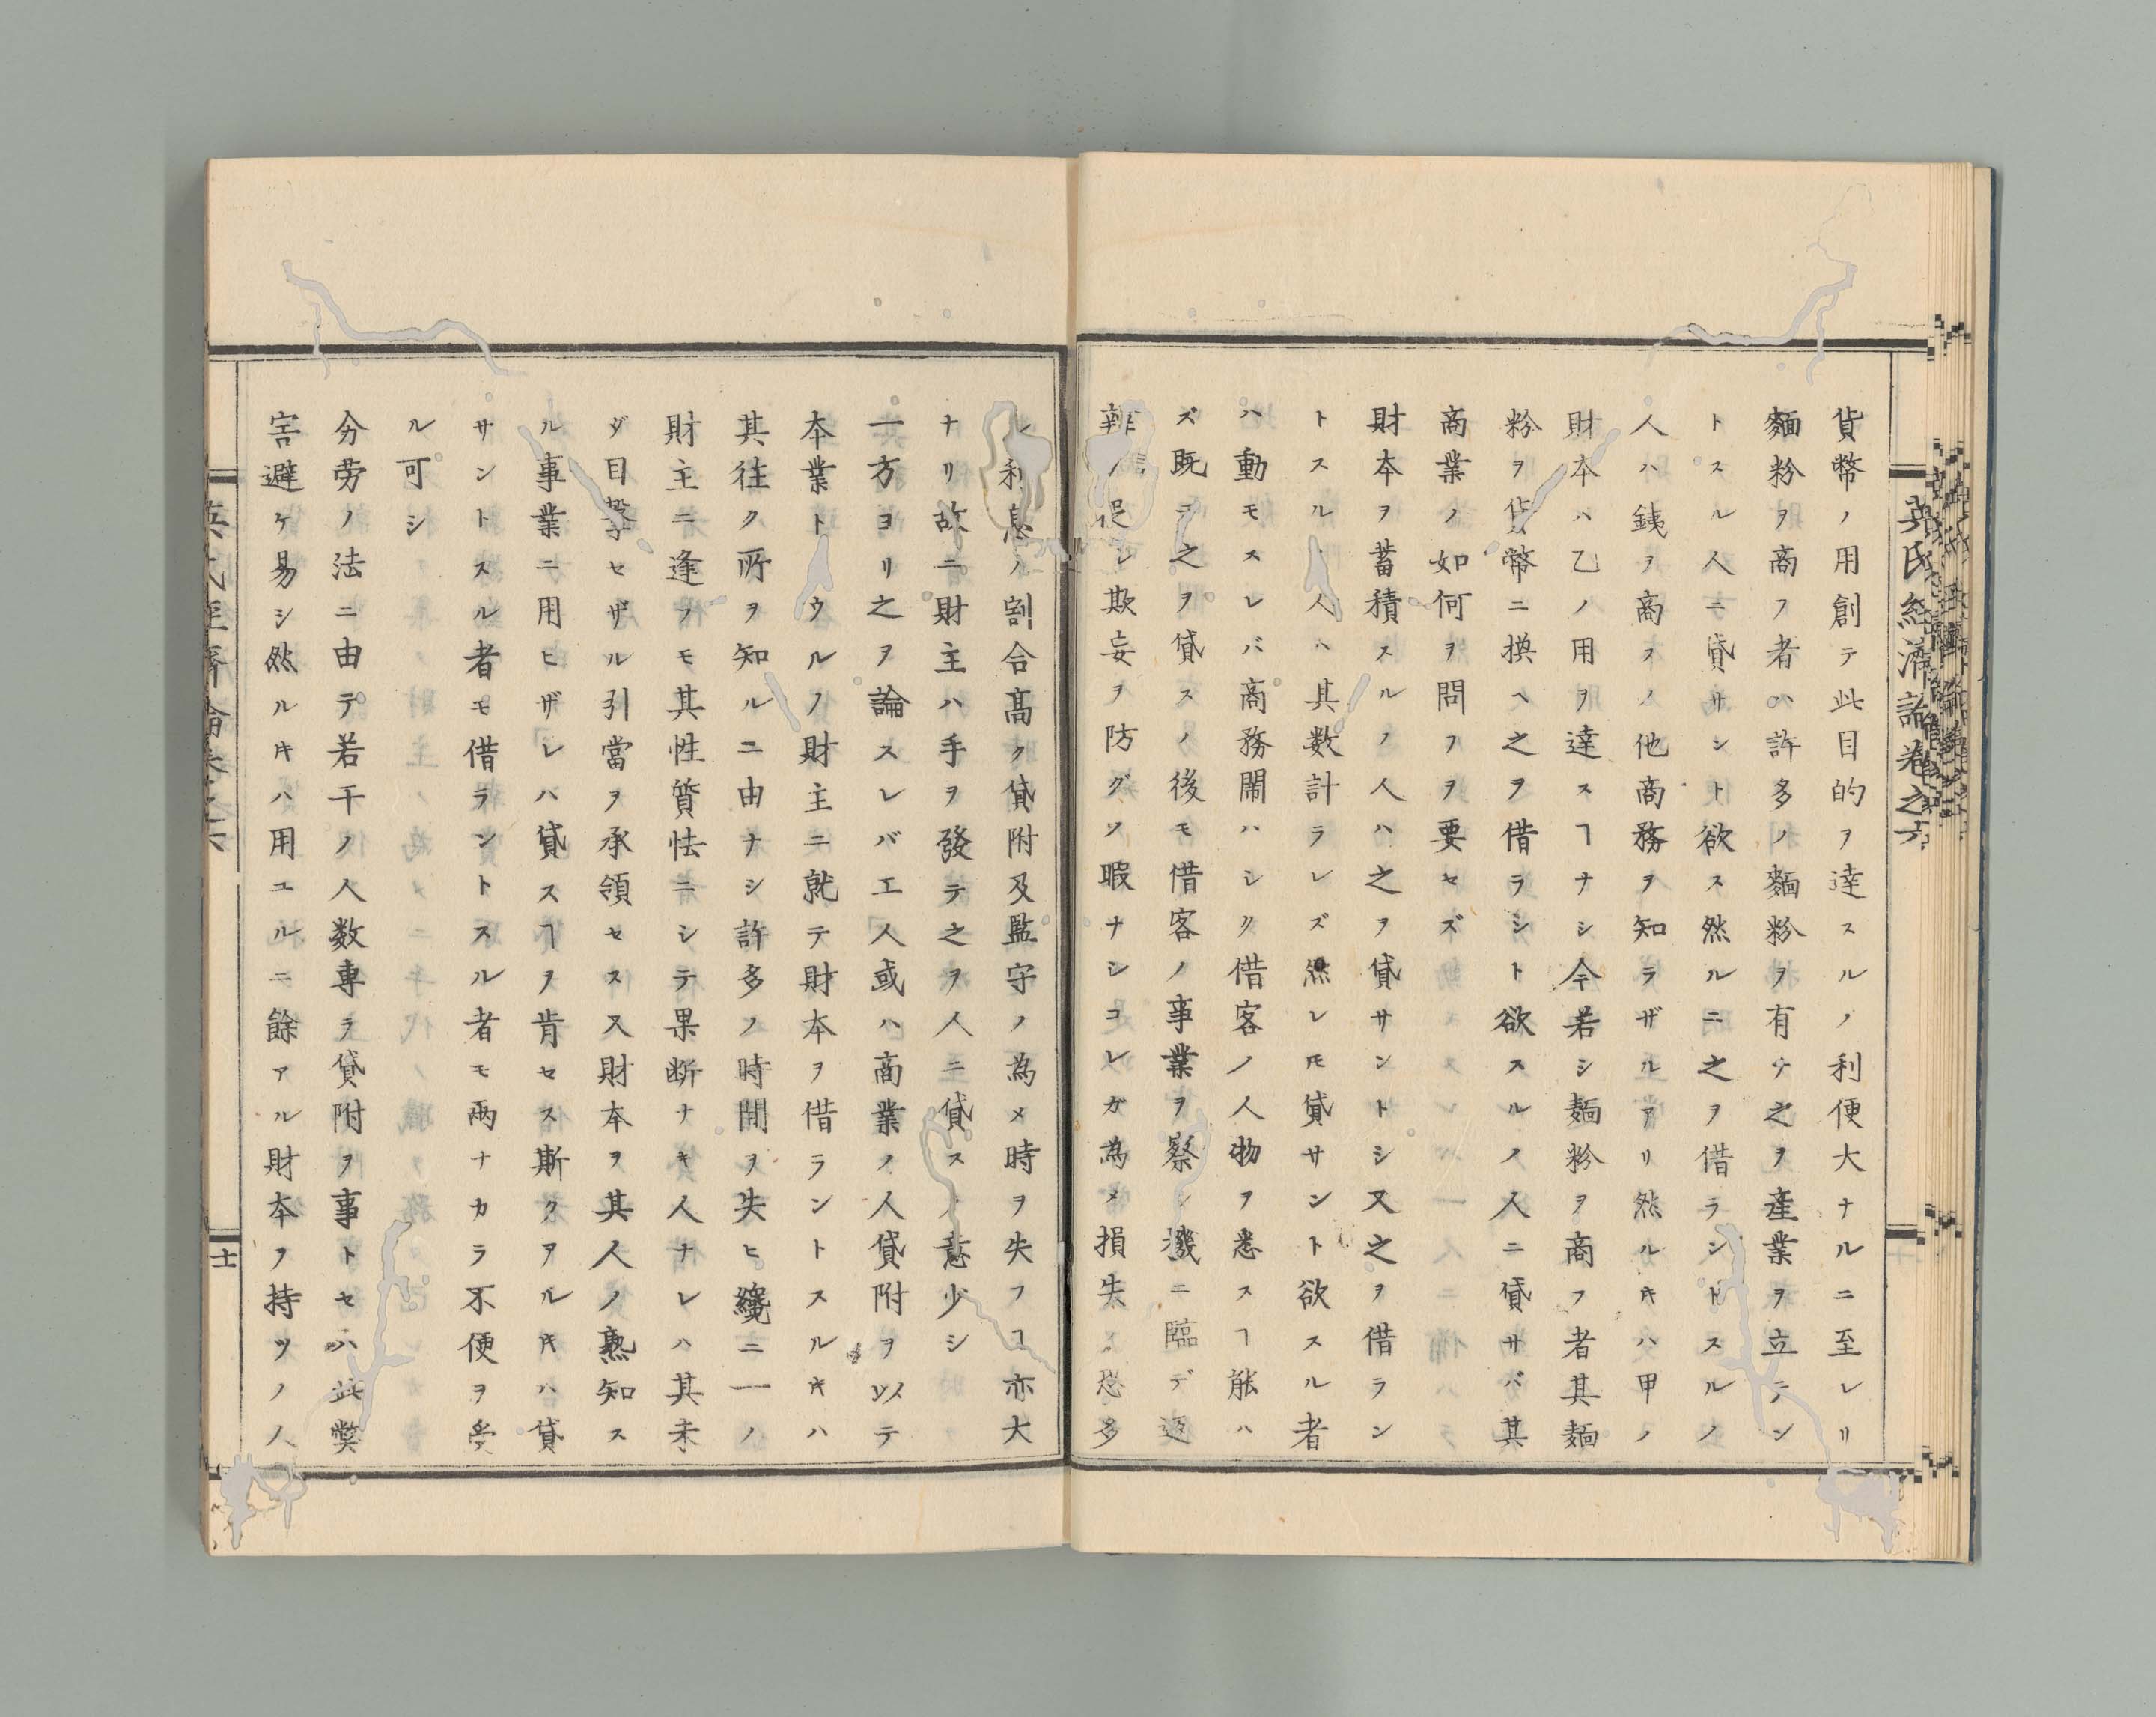 英氏経済論巻之六
貨幣ノ用創テ此目的ヲ達スルノ利便大ナルニ至レリ
麺粉ヲ商フ者ハ許多ノ麺粉ヲ有チ之ヲ産業ヲ立テン
トスル人ニ貸サント欲ス然ルニ之ヲ借ラントスルノ
人ハ銕ヲ商ヲノ他商務ヲ知ラザルアリ然ルキハ甲ノ
財本ハ乙ノ用ヲ達スヿナシ今若シ麺粉ヲ商フ者其麺
粉ヲ貨幣ニ換ヘ之ヲ借ラント欲スルノ人ニ貸サバ其
商業ノ如何ヲ問フヲ要セズ
財本ヲ蓄積スルノ人ハ之ヲ貸サントシ又之ヲ借ラン
トスル人ハ其数計ラレズ然レ𪜈貸サント欲スル者
ハ動モスレバ商務閙ハシク借客ノ人物ヲ悉スヿ能ハ
ズ既ニ之ヲ貸スノ後モ借客ノ事業ヲ察シ機ニ臨デ返
ヲ促シ欺妄ヲ防グノ暇ナシコレガ為メ損失ヲ恐多
シ利息ノ割合高ク貸附及監守ノ為メ時ヲ失フヿ亦大
ナリ故ニ財主ハ手ヲ發テ之ヲ人ニ貸スノ意少シ
一方ヨリ之ヲ論スレバ工人或ハ商業ノ人貸附ヲ以テ
本業トウルノ財主ニ就テ財本ヲ借ラントスルキハ
其往ク所ヲ知ルニ由ナシ許多ノ時間ヲ失ヒ纔ニ一ノ
財主ニ逢フモ其性質怯ニシテ果断ナキ人ナレハ其未
ダ目撃セザル引當ヲ承領セス又財本ヲ其人ノ熟知ス
ル事業ニ用ヒザレバ貸スヿヲ肯セス斯クアルキハ貸
サントスル者モ借ラントスル者モ両ナカラ不便ヲ受
ル可シ
分労ノ法ニ由テ若干ノ人数専ラ貸附ヲ事トセハ此弊
害避ケ易シ然ルキハ用エルニ餘アル財本ヲ持ツノ人
十